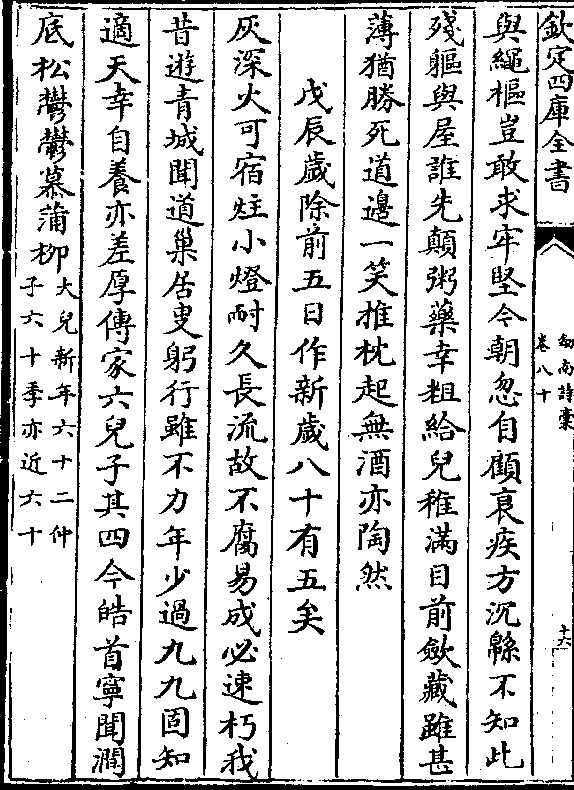 欽定四庫全書
劔南詩稾
卷八十
十六
與繩樞豈敢求牢堅今朝忽自顧衰疾方沉緜不知此
殘軀與屋誰先顛粥藥幸粗給兒稚滿目前歛藏雖甚
薄猶勝死道邊一笑推枕起無酒亦陶然
戊辰歲除前五日作新歲八十有五矣
灰深火可宿炷小燈耐久長流故不腐易成必速朽我
昔遊青城聞道巢居叟躬行雖不力年少過九九固知
適天幸自養亦差厚傳家六兒子其四今皓首寧聞澗
底松鬱鬱慕蒲柳大兒新年六十二仲
子六十季亦近六十